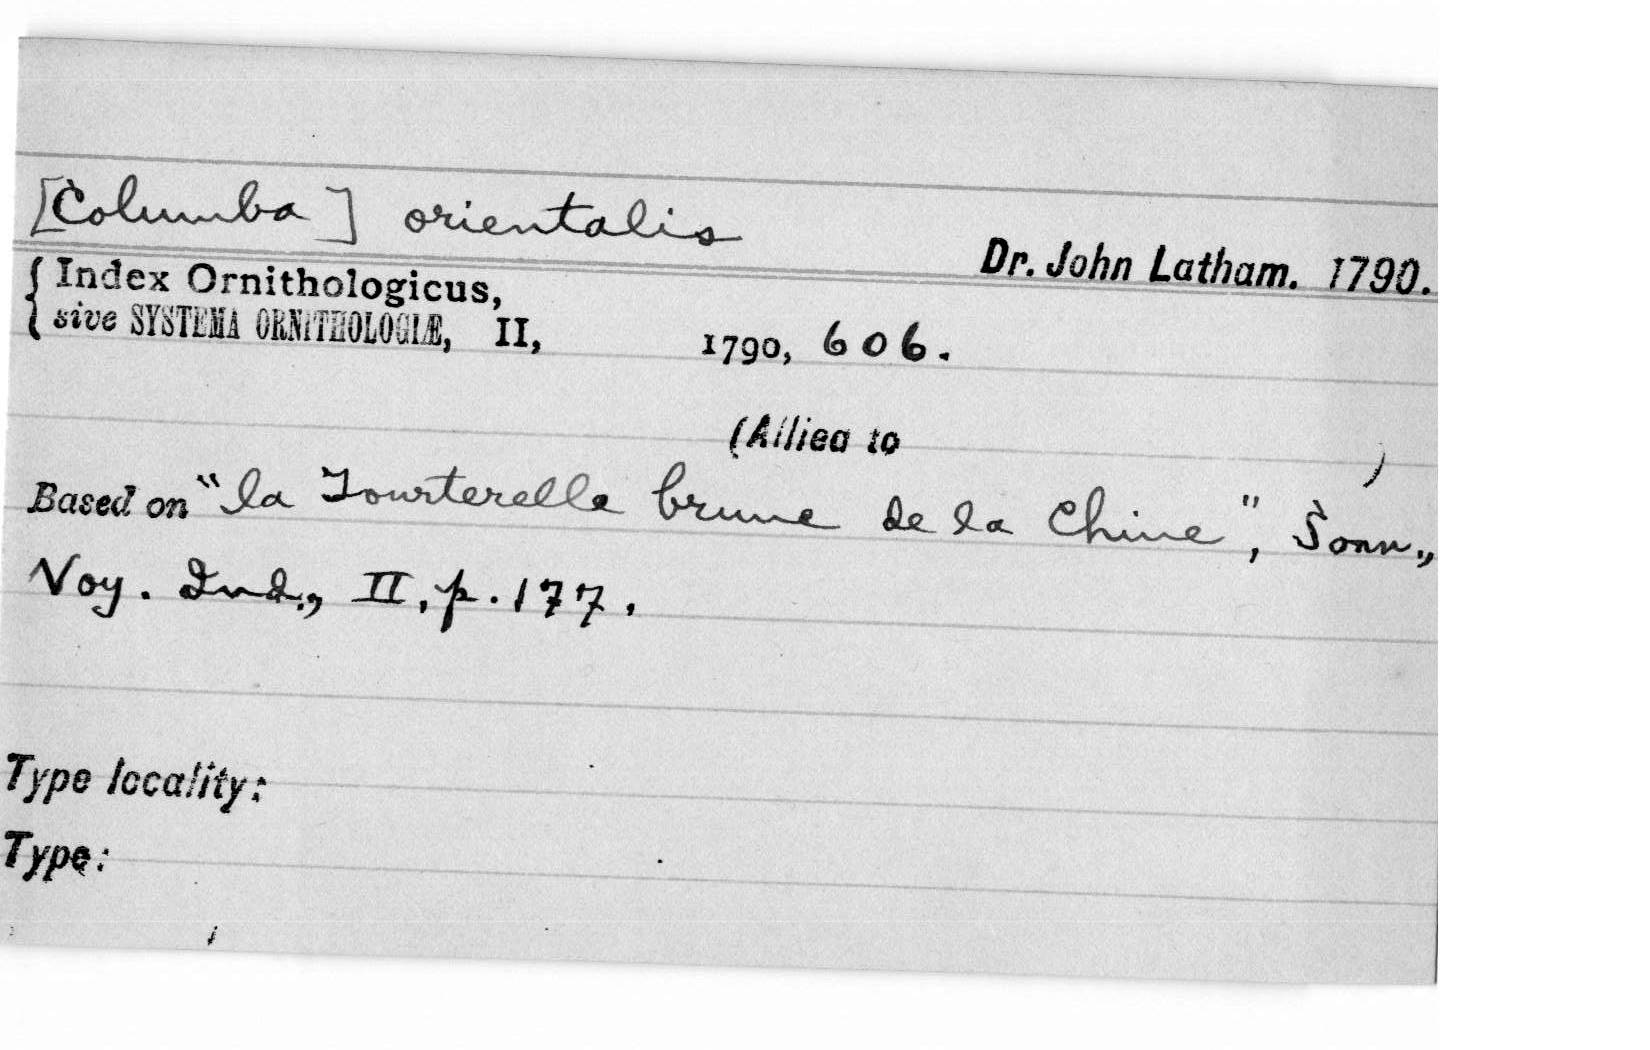 [Columba] orientalis
Dr. John Latham. 1790.
{ Index Ornithologicus,
sive SYSTEMA ORNITHOLOGIÆ, II, 1790, 606.
(Allied to )
Based on "la Tourterelle brune de la Chine", Sonn.,
Voy. Ind., II, p. 177.
Type locality:
Type: